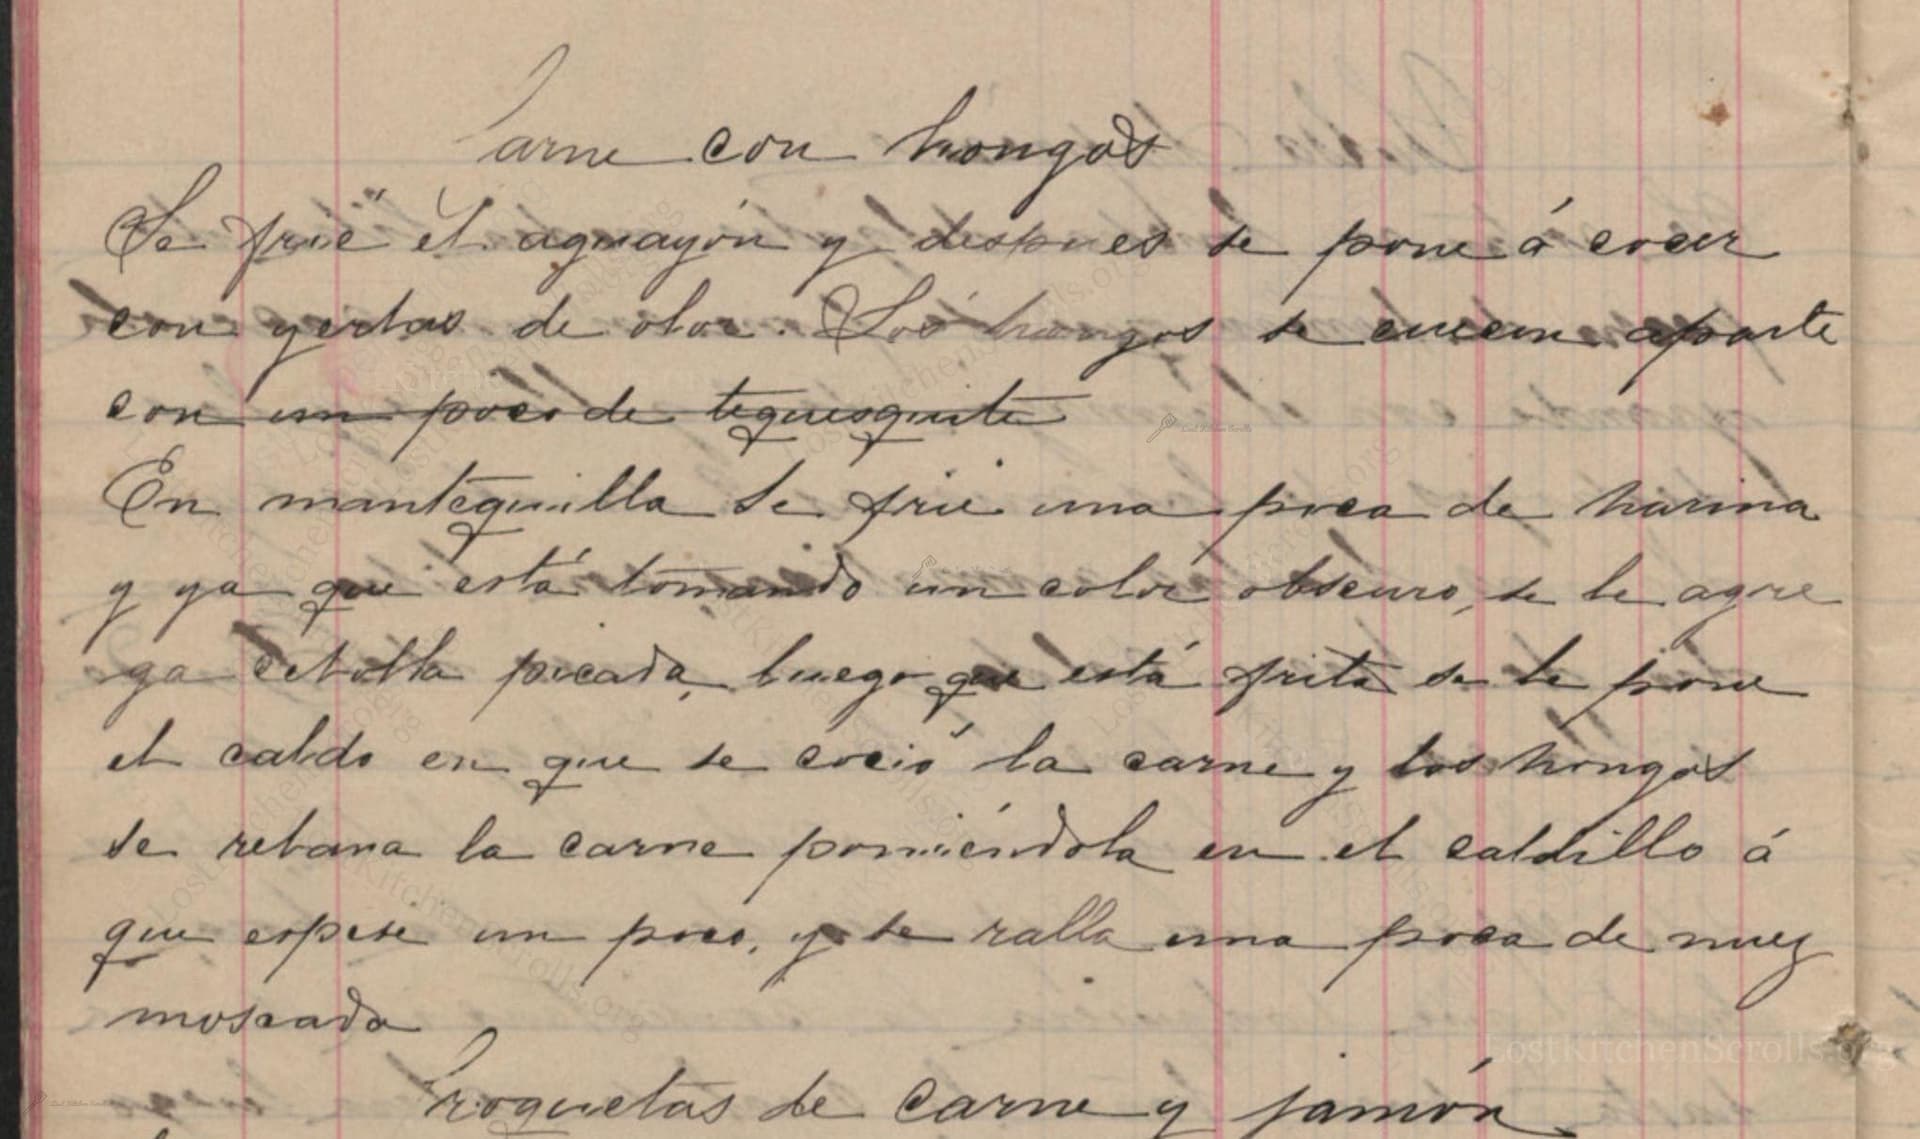 Carne con hongos
Se frie el aguayón y despues se pone á cocer
con yerbas de olor. Los hongos se cuecen aparte
con un poco de tequesquite
En mantequilla se frie una poca de harina
y ya que está tomando un color obscuro, se le agre
ga cebolla picada, luego que está frita se le pone
el caldo en que se coció la carne y los hongos
se rebana la carne poniéndola en el caldillo á
que espese un poco, y se ralla una poca de nuez
moscada
Croquetas de carne y jamón
LostKitchenScrolls.org